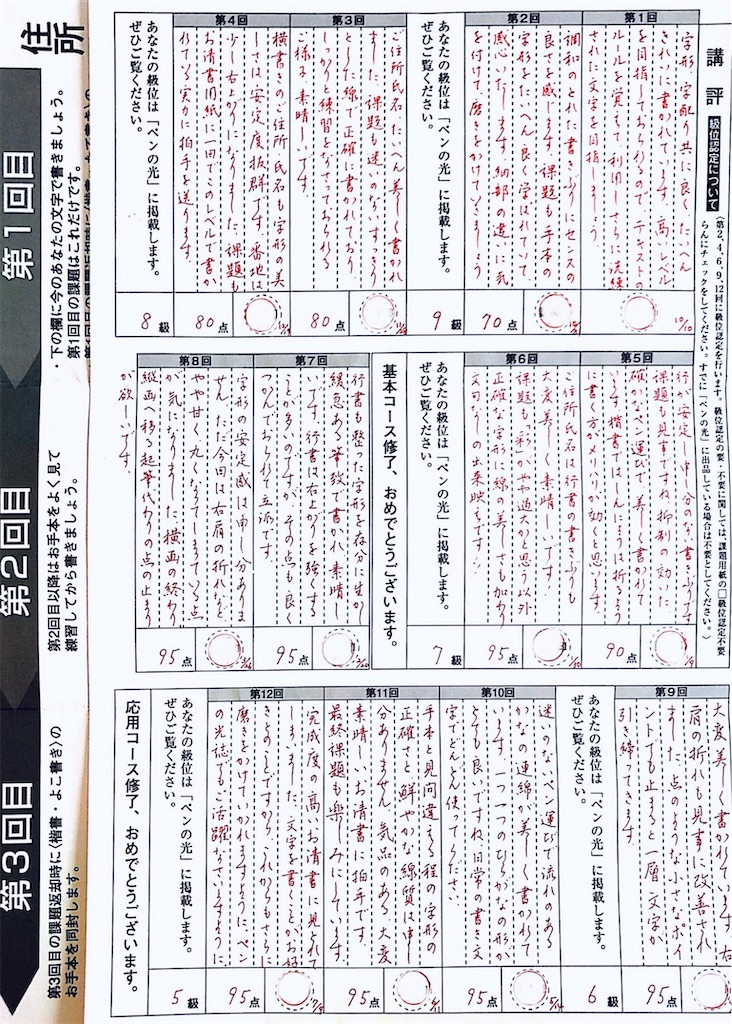 講評
級位認定について
(第2、4、6、9、12回に級位認定を行います。級位認定の要・不要に関しては、課題用紙の□級位認定不要
らんにチェックをしてください。すでに「ペンの光」に出品している場合は不要としてください。)
第1回
字形、字配り共に良く、たいへん
きれいに書かれています。高いレベル
を目指しておられるので、テキストの
ルールを覚えて利用し、さらに洗練
された文字を目指しましょう。
10/10
第2回
調和のとれた書きぶりにセンスの
良さを感じます。課題も手本の
字形をたいへん良く学ばれていて、
感心いたします。細部の違いに気
を付けて、磨きをかけていきましょう。
70点
あなたの級位は「ペンの光」に掲載します。
ぜひご覧ください。
9級
第3回
ご住所氏名、たいへん美しく書かれ
ました。課題も迷いのない、すっきり
とした線で正確に書かれており、
しっかりと練習をなさっておられる
ご様子、素晴しいです。
80点
第4回
横書きのご住所氏名も字形の美
しさは安定度抜群です。番地は
少し右上がりになりました。課題も
お清書用紙に一回でこのレベルで書か
れている実力に拍手を送ります。
80点
あなたの級位は「ペンの光」に掲載します。
ぜひご覧ください。
8級
第5回
行が安定し申し分のない書きぶりです。
課題も見事ですね。抑制の効いた
確かなペン運びで、美しく書かれて
います。楷書ではしんにょうは折るよう
に書く方がメリハリが効くと思います。
90点
第6回
ご住所氏名は行書の書きぶりも
大変美しく素晴しいです。
課題も「彩」がやや過大かと思う以外
正確な字形に線の美しさも加わり、
文句なしの出来映えです!
95点
あなたの級位は「ペンの光」に掲載します。
ぜひご覧ください。
7級
基本コース修了、おめでとうございます。
第7回
行書も整った字形を存分に生かし、
緩急ある筆致で書かれ、素晴し
いです。行書は右上がりを強くする
ことが多いのですが、その点も良く
つかんでおられて立派です。
95点
第8回
字形の安定感は申し分ありま
せん。ただ今回は右肩の折れなど
やや甘く、丸くなってしまっている点
が気になりました。横画の終わり
縦画へ移る起筆代わりの点の止まり
が欲しいです。
95点
第9回
大変美しく書かれています。右
肩の折れも見事に改善され
ました。点のような小さなポイ
ントでも止まると一層、文字が
引き締ってきます。
95点
あなたの級位は「ペンの光」に掲載します。
ぜひご覧ください。
6級
第10回
迷いのないペン運びで流れのある
かなの連綿が美しく書かれて
います。一つ一つのひらがなの形が
とても良いですね。日常の書き文
字でどんどん使ってください。
95点
第11回
手本と見間違える程の字形の
正確さと鮮やかな線質は申し
分ありません。気品のある大変
素晴しいお清書に拍手です。
最終課題も楽しみにしています。
95点
第12回
完成度の高いお清書に見とれて
しまいました。文字を書くことがお好
きとのことですから、これからもさらに
磨きをかけていかれますように。ペン
の光誌でもご活躍なさいますように。
95点
あなたの級位は「ペンの光」に掲載します。
ぜひご覧ください。
5級
応用コース修了、おめでとうございます。
住所
第1回目
・下の欄に今のあなたの文字で書きましょう。
第1回目の課題はこれだけです。
第2回目
第2回目以降はお手本をよく見て
練習してから書きましょう。
第3回目
第3回目の課題返却時に〈楷書・よこ書き〉の
お手本を同封します。